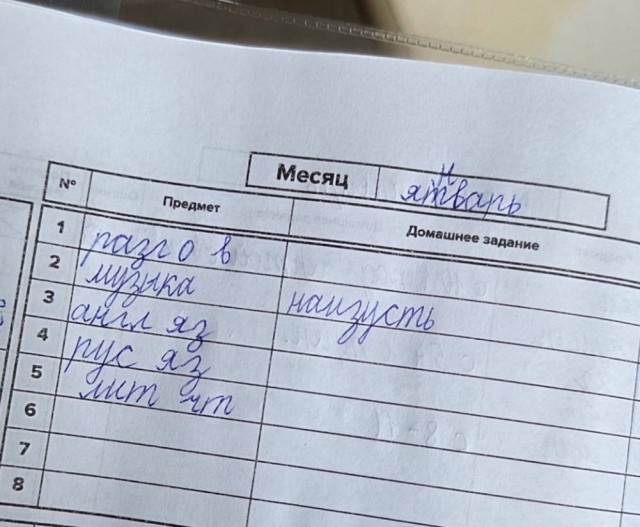 Месяц январь
№ Предмет Домашнее задание
1 разг о в
2 музыка
3 англ яз наизусть
4 рус яз
5 лит чт
6
7
8